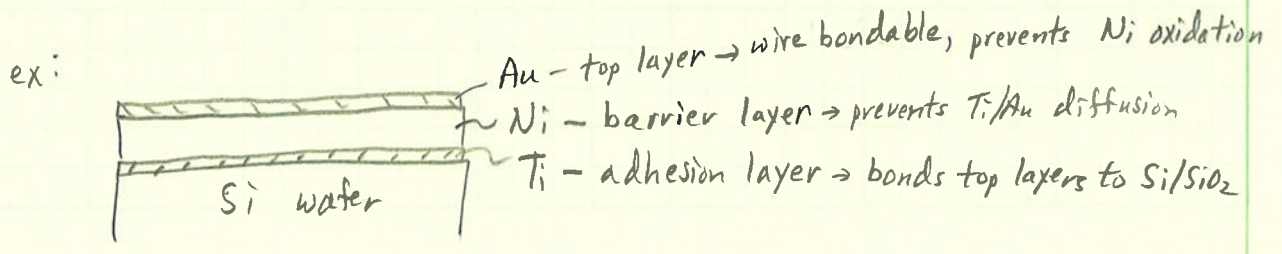 ex:
Au - top layer → wire bondable, prevents Ni oxidation
Ni - barrier layer → prevents Ti/Au diffusion
Ti - adhesion layer → bonds top layers to Si/SiO₂
Si wafer